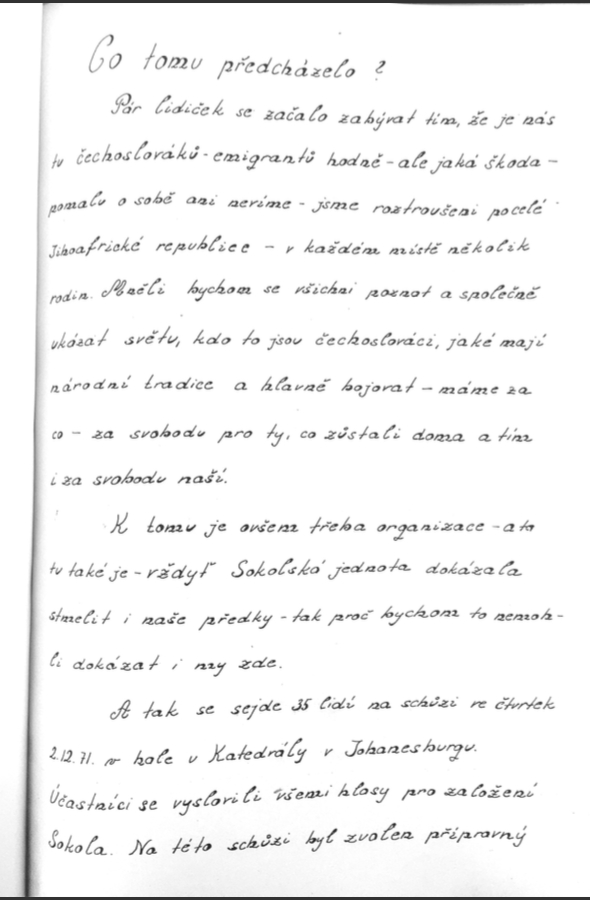 Co tomu předcházelo ?
Pár lidiček se začalo zabývat tím, že je nás
tu čechoslováků - emigrantů hodně - ale jaká škoda -
pomalu o sobě ani nevíme - jsme roztroušeni po celé
Jihoafrické republice - v každém místě několik
rodin. Měli bychom se všichni poznat a společně
ukázat světu, kdo to jsou čechoslováci, jaké mají
národní tradice a hlavně bojovat - máme za
co - za svobodu pro ty, co zůstali doma a tím
i za svobodu naší.
K tomu je ovšem třeba organizace - a to
tu také je - vždyť Sokolská jednota dokázala
stmelit i naše předky - tak proč bychom to nemoh-
li dokázat i my zde.
A tak se sejde 35 lidí na schůzi ve čtvrtek
2.12.71. v hale u Katedrály v Johanesburgu.
Účastníci se vyslovili všemi hlasy pro založení
Sokola. Na této schůzi byl zvolen přípravný